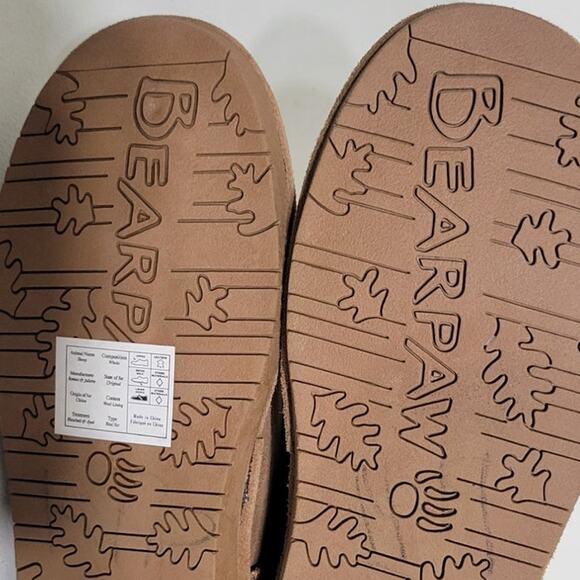 BEARPA
BEARPAW
Animal Name
Sheep
Composition
Whole
Manufacturer
Romeo & Juliette
State of fur
Original
Origin of fur
China
Content
Wool Lining
Treatment
Bleached & dyed
Type
Real fur
Made in China
Fabriqué en China